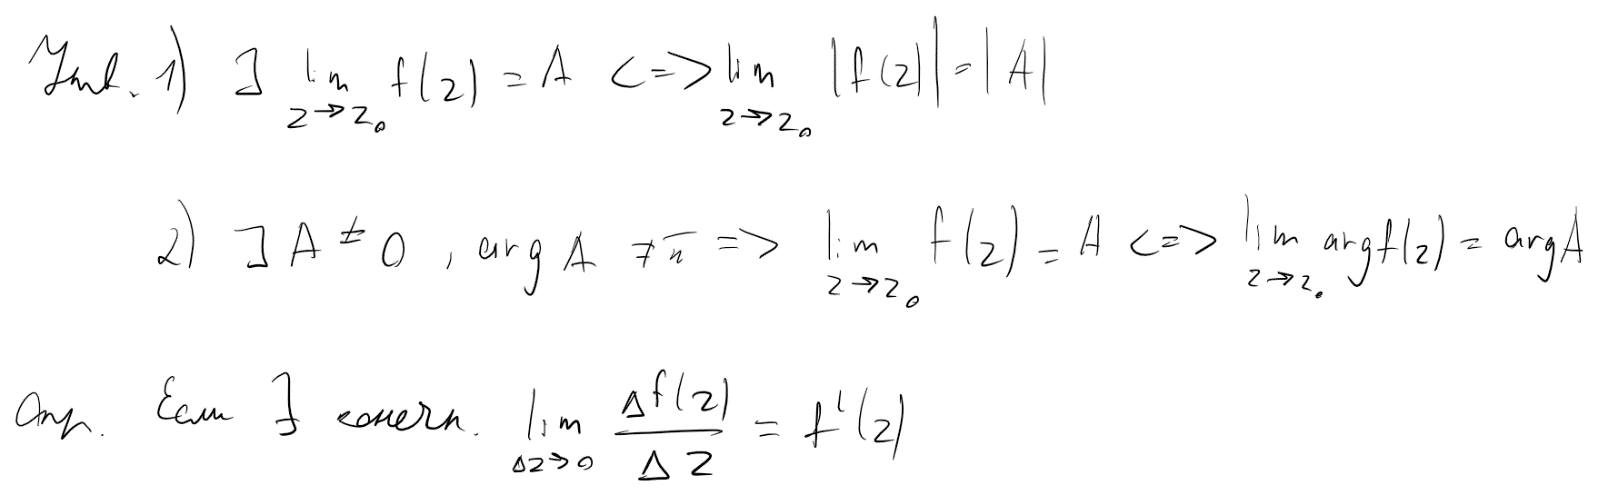 Утв. 1) ∃ lim_{z→z₀} f(z) = A <=> lim_{z→z₀} |f(z)| = |A|
2) ∃ A ≠ 0, arg A ≠ π => lim_{z→z₀} f(z) = A <=> lim_{z→z₀} arg f(z) = arg A
Опр. Если ∃ конечн. lim_{Δz→0} Δf(z)/Δz = f'(z)